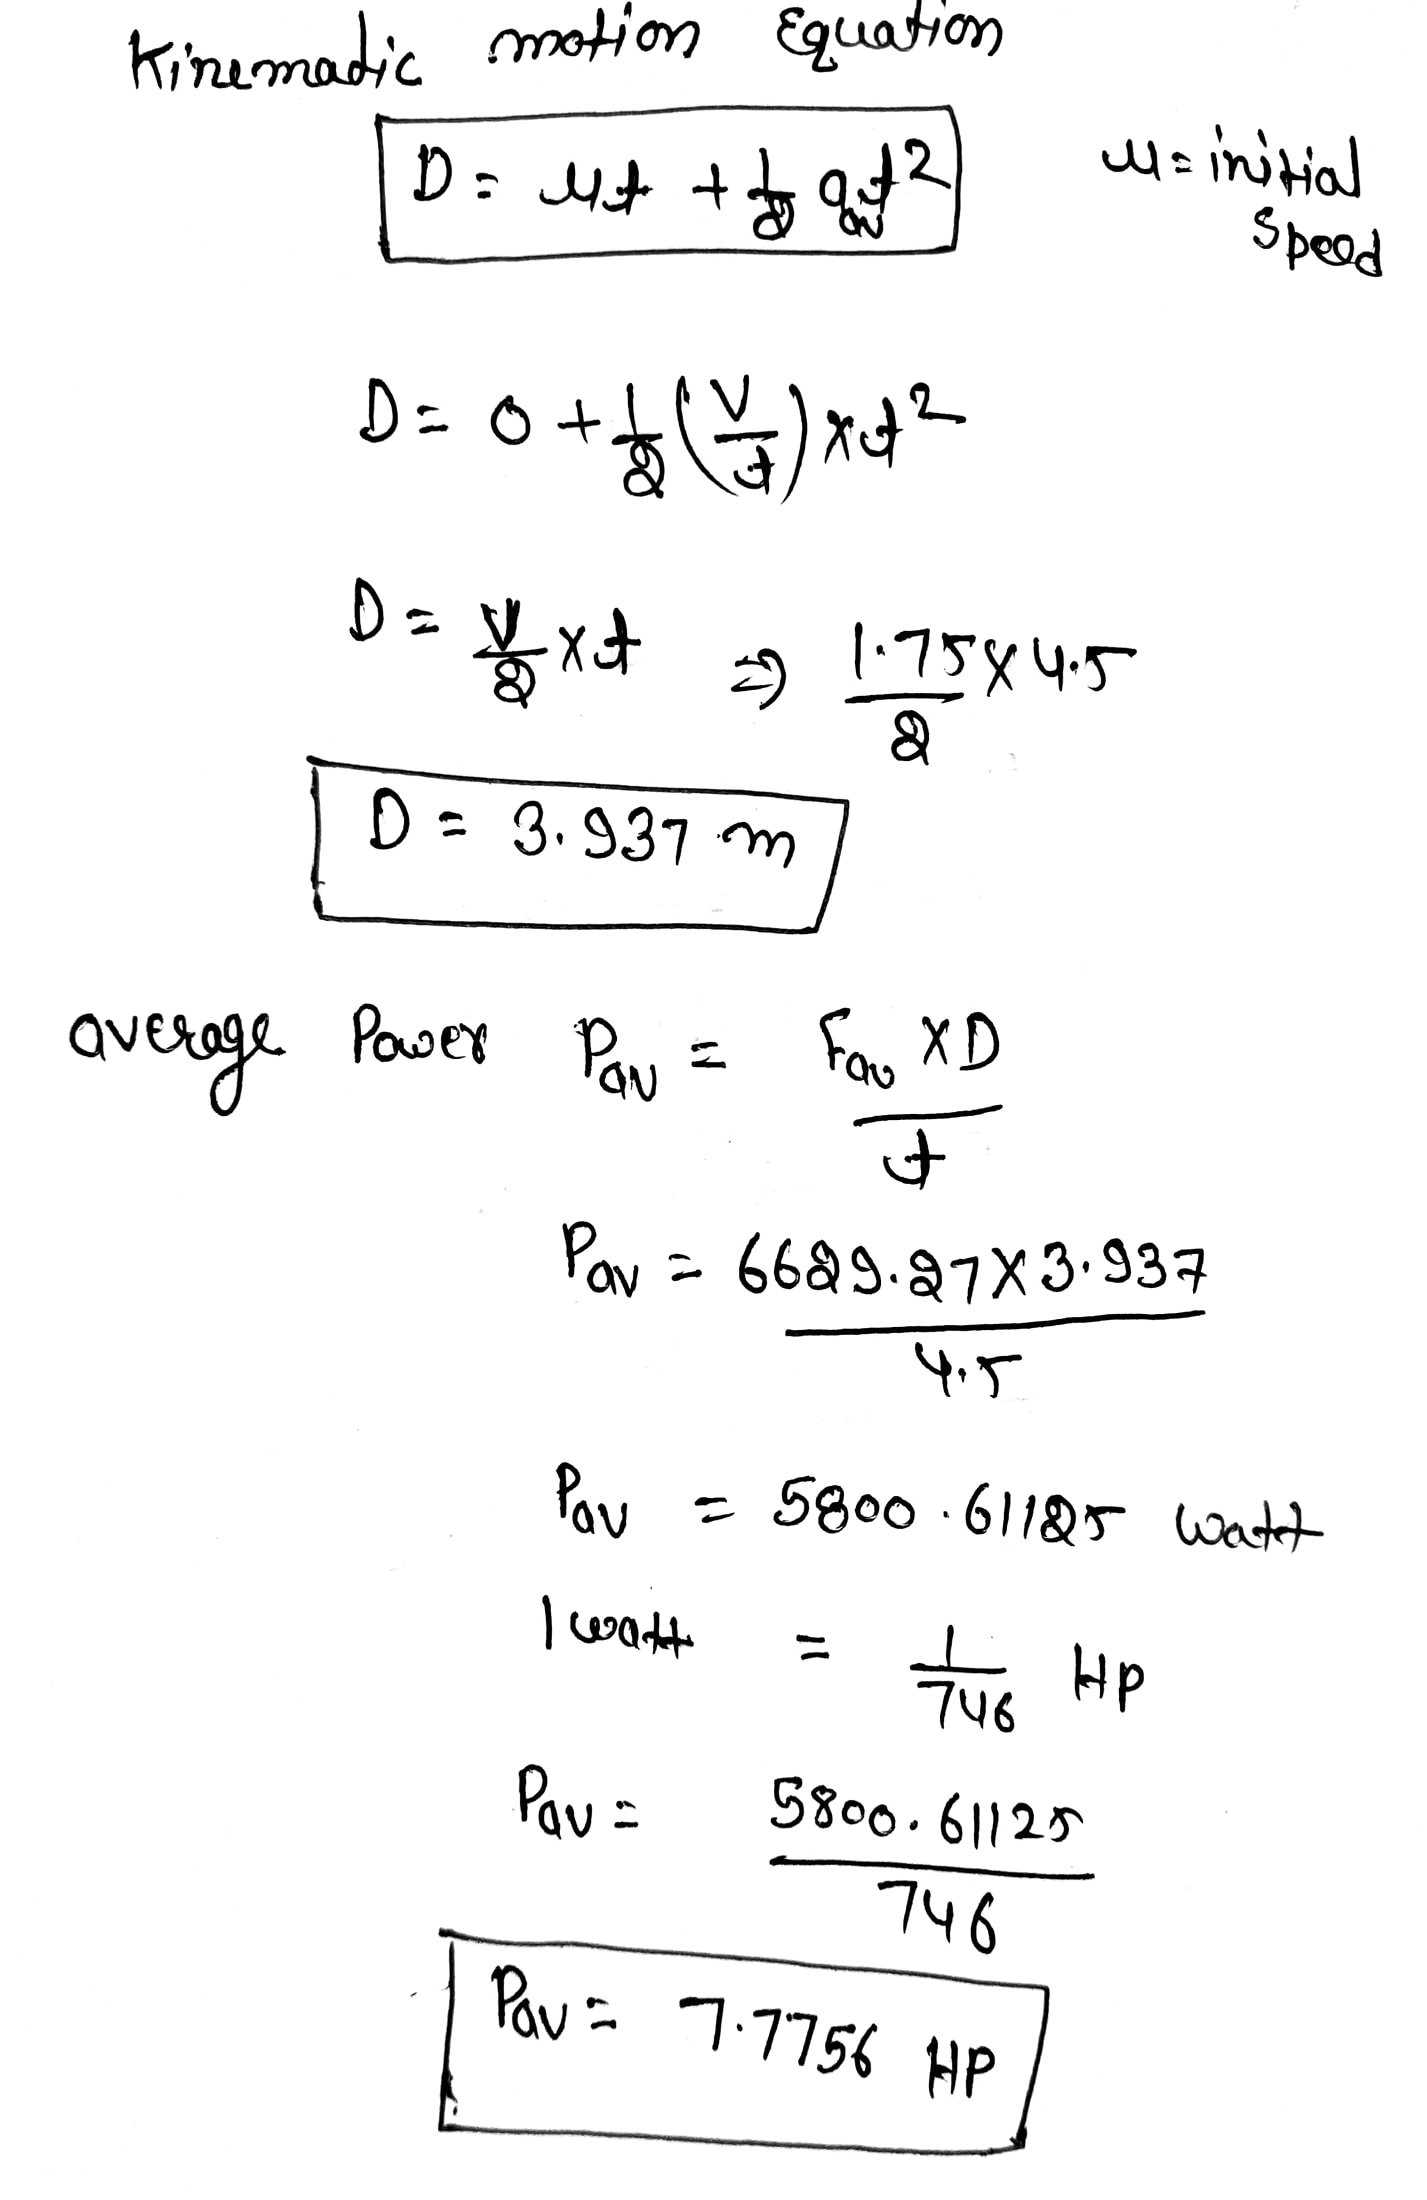 Kinemadic motion Equation
D = ut + 1/2 a_av t²
u = initial
Speed
D = 0 + 1/2 (V/t) × t²
D = V/2 × t ⇒ 1.75/2 × 4.5
D = 3.937 m
average Power P_av = F_av × D / t
P_av = 6629.27 × 3.937 / 4.5
P_av = 5800.61125 watt
1 watt = 1/746 HP
P_av = 5800.61125 / 746
P_av = 7.7756 HP